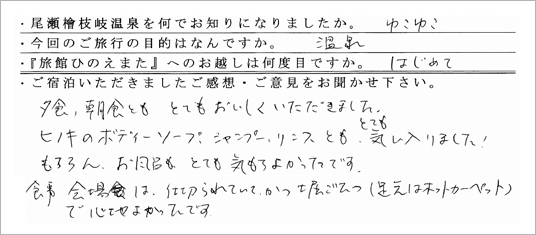 ・尾瀬檜枝岐温泉を何でお知りになりましたか。 ゆこゆこ
・今回のご旅行の目的はなんですか。 温泉
・『旅館ひのえまた』へのお越しは何度目ですか。 はじめて
・ご宿泊いただきましたご感想・ご意見をお聞かせ下さい。
夕食、朝食とも とてもおいしくいただきました。
ヒノキのボディーソープ、シャンプー、リンスとも、とても気に入りました!
もちろん、お風呂も とても 気もちよかったです。
食事会場は、仕切られていて、かつ堀ごたつ(足元はホットカーペット)
で心地よかったです